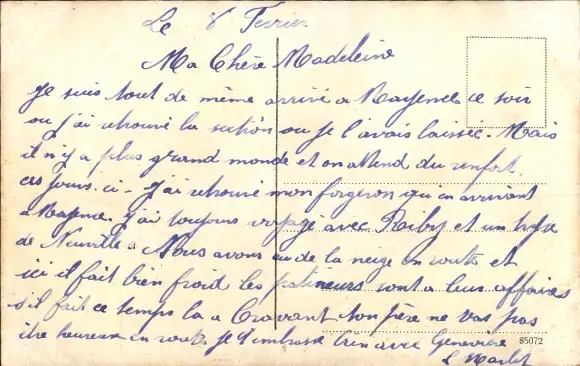 Le 8 Fevrier
Ma Chère Madeleine
Je suis tout de même arrivé a Mayence ce soir
ou j'ai retrouvé la section ou je l'avais laissée. Mais
il n'y a plus grand monde et on attend du renfort
ces jours-ci - J'ai retrouvé mon forgeron qui en arrivant
a Mayence. J'ai toujours voyagé avec Riby et un
de Neuville. Nous avons eu de la neige en route et
ici il fait bien froid les patineurs sont a leur affaires
s'il fait ce temps la a Cravant ton père ne va pas
être heureux en route. Je t'embrasse avec Geneviève
85072